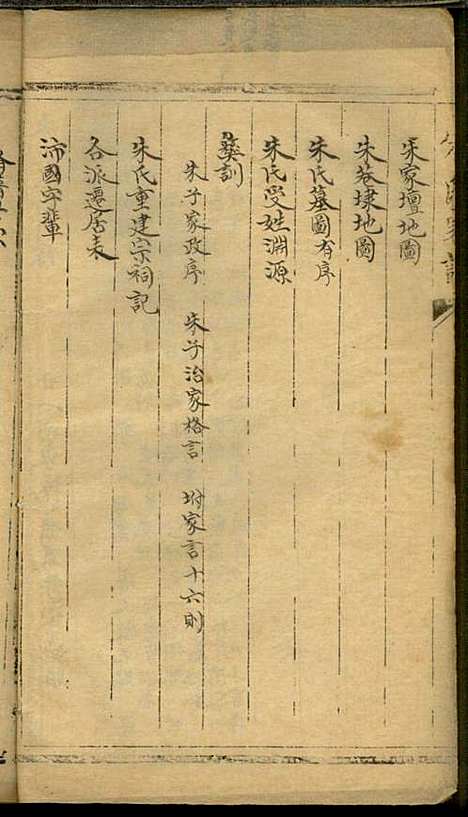 朱家壇地圖
朱家埭地圖
朱氏墓圖有序
朱氏受姓淵源
彝訓
朱子家政序 朱子治家格言 坿家言十六則
朱氏重建宗祠記
各派遷居表
沛國字輩